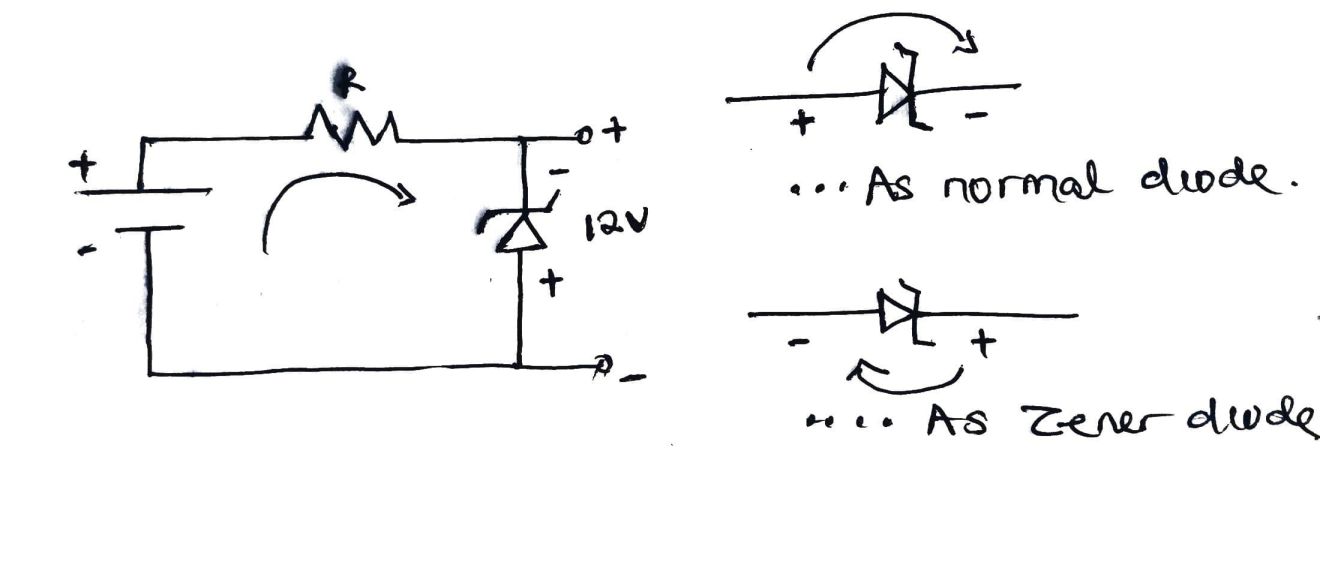 R
+
-
+
-
12V
+
-
+ -
... As normal diode.
- +
.... As Zener diode